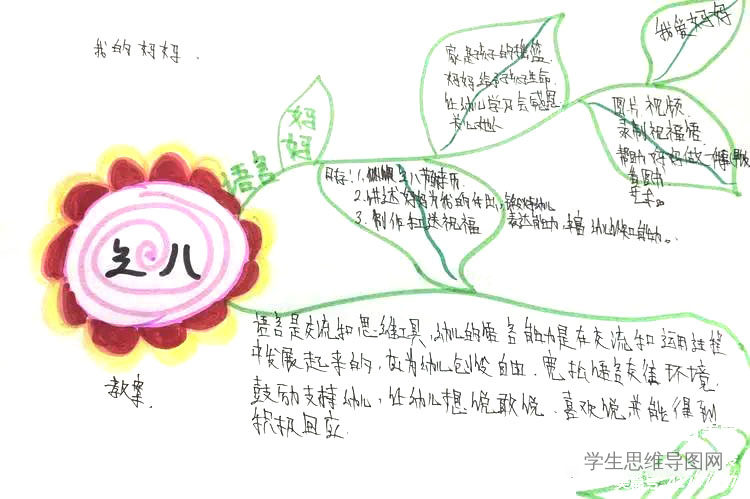 我的妈妈.
我爱妈妈
家是孩子的摇篮
妈妈给予孩子生命
让幼儿学习会感恩
图片 视频
录制祝福语
帮助妈妈做一件事
语言
妈妈
2.讲述妈妈为我的付出,
3.制作 祝福
表达能力,
三八
教案.
语言是交流和思维工具,幼儿的语言能力是在交流和运用过程
中发展起来的,应为幼儿创设自由.宽松语言交往环境.
鼓励支持幼儿,让幼儿想说敢说.喜欢说并能得到
积极回应.
学生思维导图网